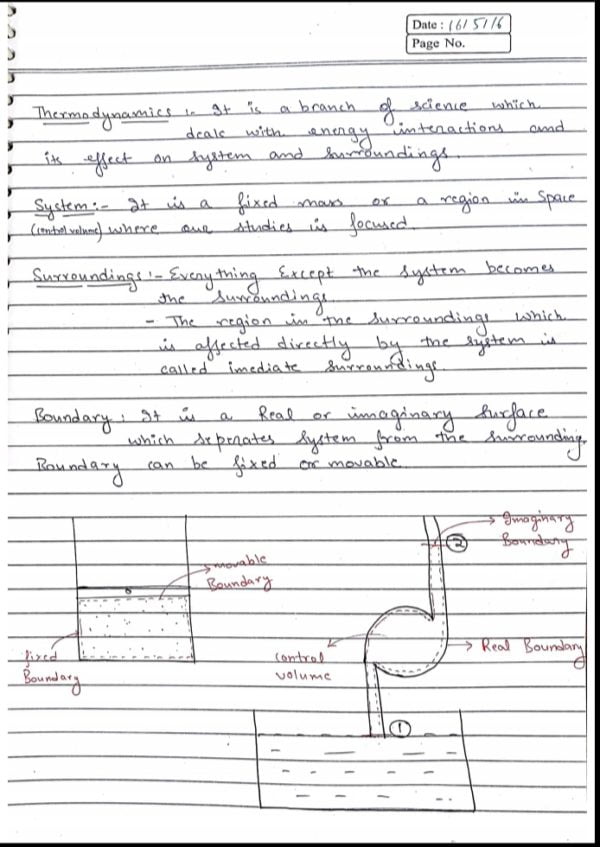 Date : 16/5/16
Page No.
Thermodynamics :- It is a branch of science which
deals with energy interactions and
its effect on system and surroundings.
System:- It is a fixed mass or a region in Space
(control volume) where our studies is focused.
Surroundings :- Everything Except the system becomes
the surroundings.
- The region in the surroundings which
is affected directly by the system is
called imediate surroundings.
Boundary : It is a Real or imaginary surface
which seperates system from the surrounding.
Boundary can be fixed or movable.
Imaginary
Boundary
②
movable
Boundary
fixed
Boundary
control
volume
Real Boundary
①